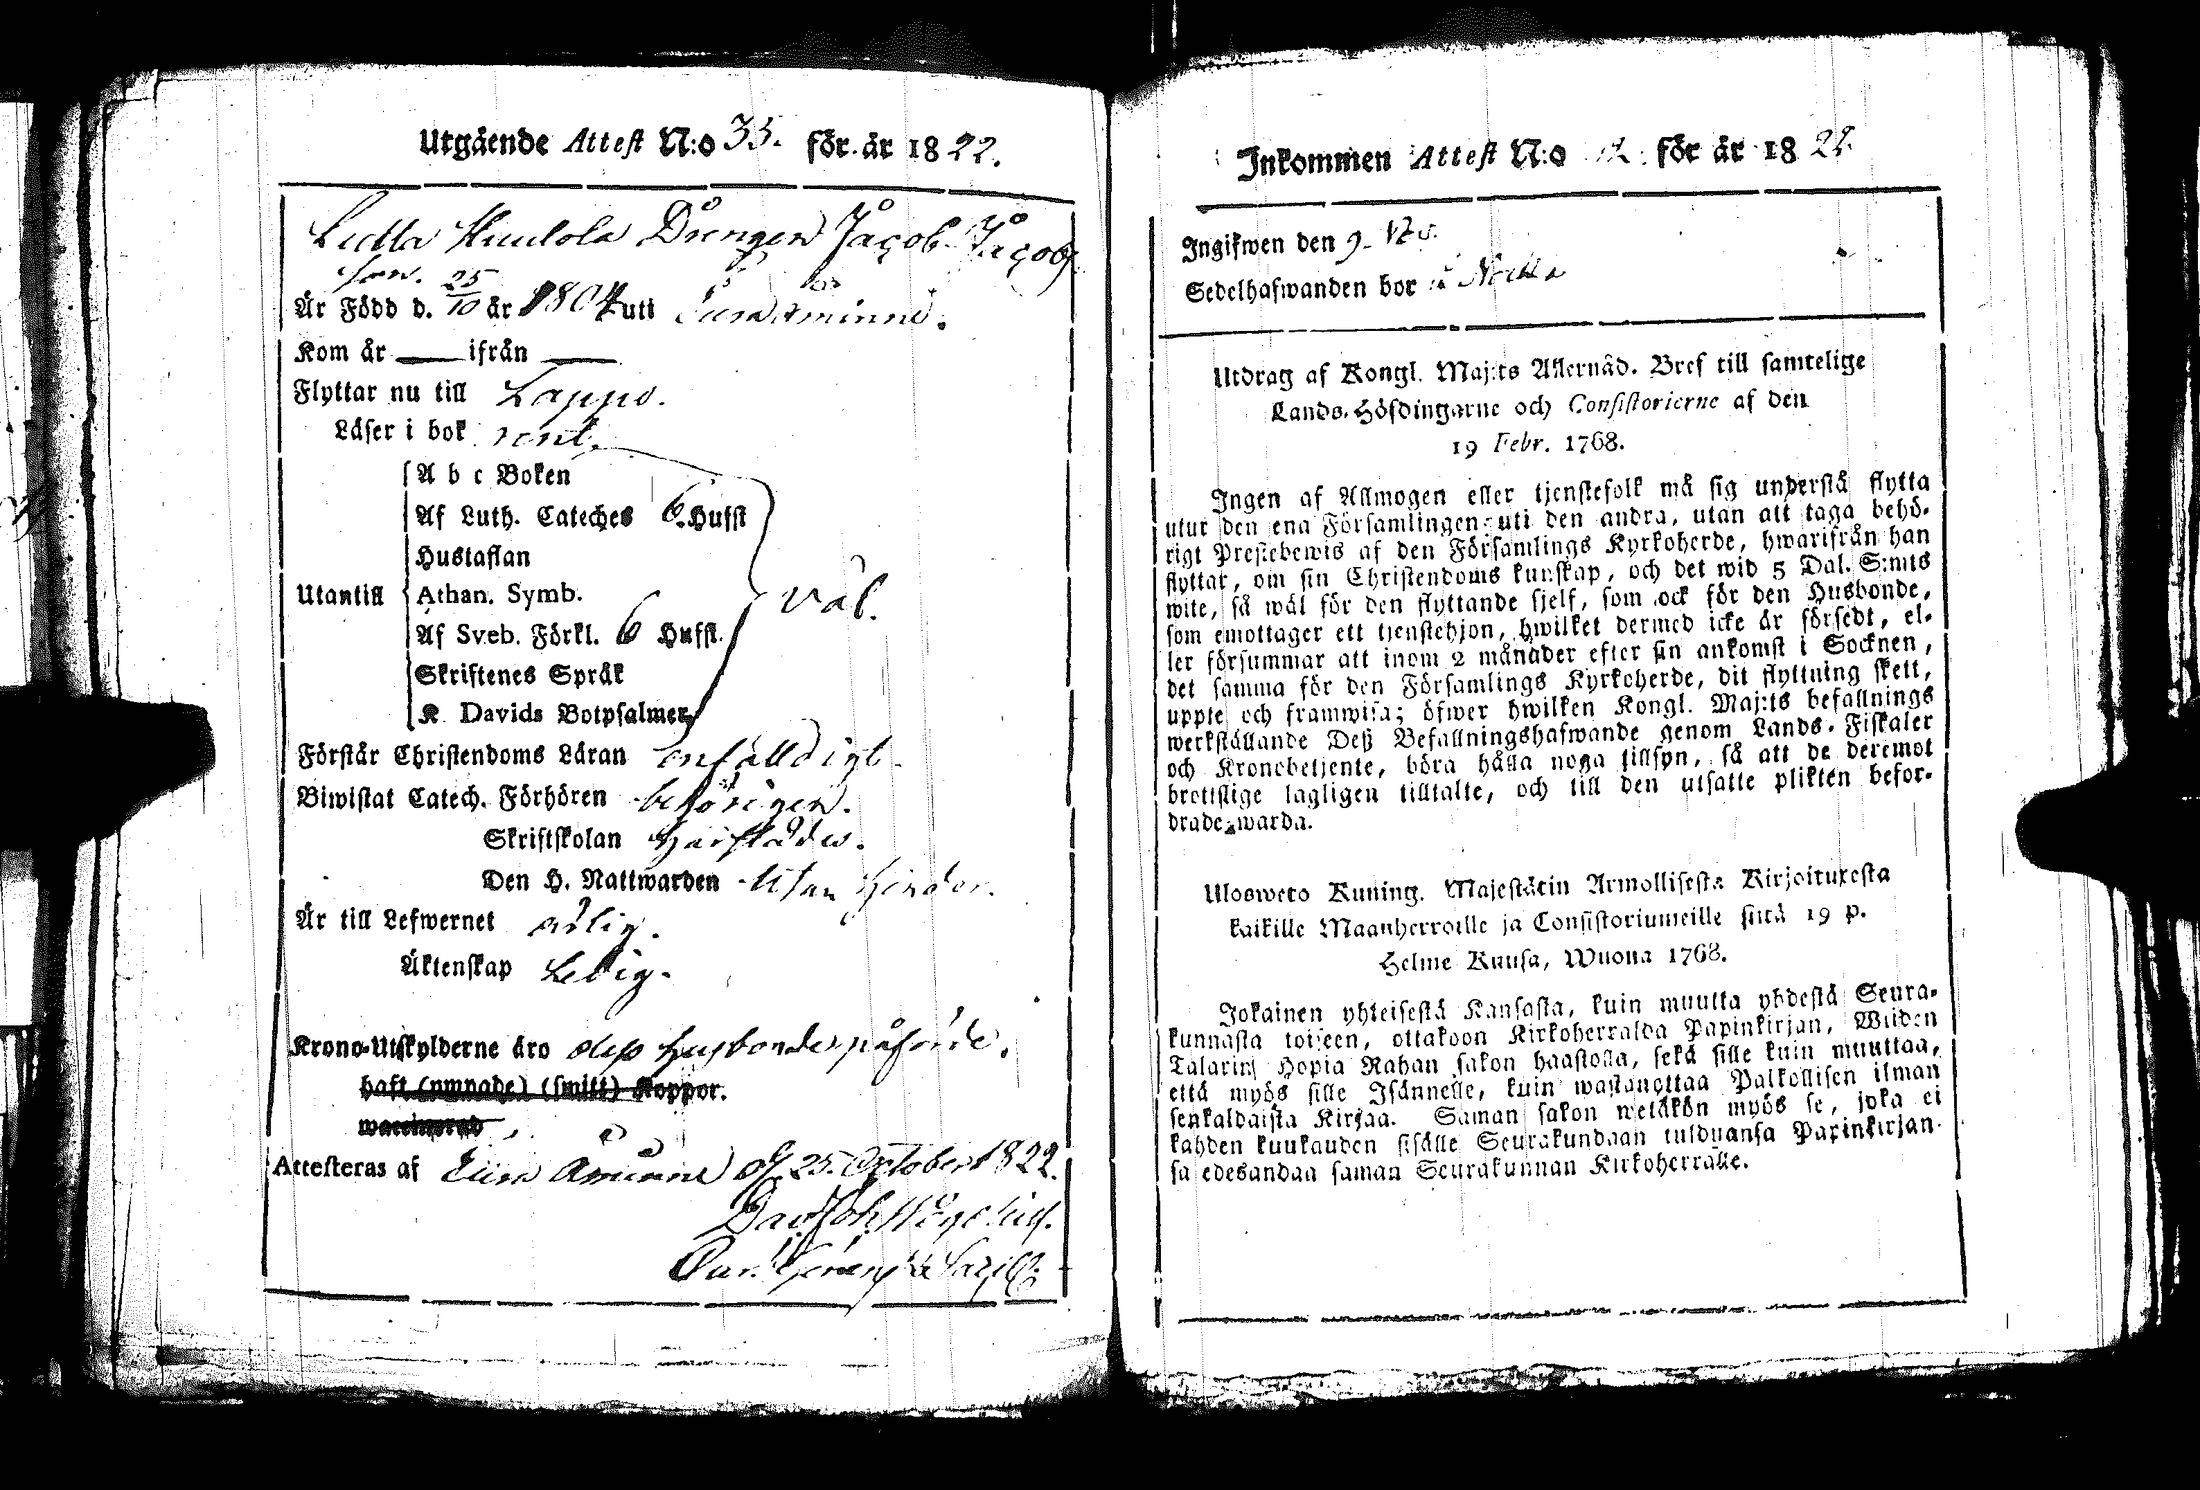 Utgående Attest N:o 35. för år 1822.
Lutta Huulola Drengen Jacob Jacobs
son.
Är Född d. 25/10 år 1804 uti Eura åminne.
Kom år — ifrån —
Flyttar nu till Lappo.
Läser i bok rent.
A b c Boken
Af Luth. Cateches 6. Hufst
Hustaflan
Utantill Athan. Symb. väl.
Af Sveb. Förkl. 6 Hufst.
Skriftenes Språk
K. Davids Botpsalmer
Förstår Christendoms Läran enfalldigt.
Biwistat Catech. Förhören behörigen.
Skriftskolan härstädes.
Den H. Nattwarden utan hinder.
Är till Lefwernet ärlig.
Äktenskap Ledig.
Krono-Utskylderne äro dess husbonde påförde.
haft (ympade) (smitt) Koppor.
Attesteras af Eura Åminne d. 25. October 1822.
Inkommen Attest N:o för år 1822.
Ingifwen den 9.
Sedelhafwanden bor
Utdrag af Kongl. Maj:ts Allernåd. Bref till samtelige
Lands-Höfdingarne och Consistorierne af den
19 Febr. 1768.
Ingen af Allmogen eller tjenstefolk må sig understå flytta
utur den ena Församlingen uti den andra, utan att taga behö-
rigt Prestebewis af den Församlings Kyrkoherde, hwarifrån han
flyttar, om sin Christendoms kunskap, och det wid 5 Dal. S:mts
wite, så wäl för den flyttande sjelf, som ock för den Husbonde,
som emottager ett tjenstehjon, hwilket dermed icke är försedt, el-
ler försummar att inom 2 månader efter sin ankomst i Socknen,
det samma för den Församlings Kyrkoherde, dit flyttning skett,
uppte och framwisa; öfwer hwilken Kongl. Maj:ts befallnings
werkställande Deß Befallningshafwande genom Lands-Fiskaler
och Kronobetjente, böra hålla noga tillsyn, så att de deremot
brottslige lagligen tilltalte, och till den utsatte plikten befor-
drade warda.
Ulosweto Kuning. Majestätin Armollisesta Kirjoituxesta
kaikille Maanherroille ja Consistoriumeille siitä 19 p.
Helme Kuusa, Wuona 1768.
Jokainen yhteisestä Kansasta, kuin muutta yhdestä Seura-
kunnasta toiseen, ottakoon Kirkoherralda Papinkirjan, Wiiden
Talarin Hopia Rahan sakon haastolla, sekä sille kuin muuttaa,
että myös sille Isännelle, kuin wastanottaa Palkollisen ilman
senkaldaista Kirjaa. Saman sakon wetäkön myös se, joka ei
kahden kuukauden sisälle Seurakundaan tulduansa Papinkirjan-
sa edesandaa saman Seurakunnan Kirkoherralle.